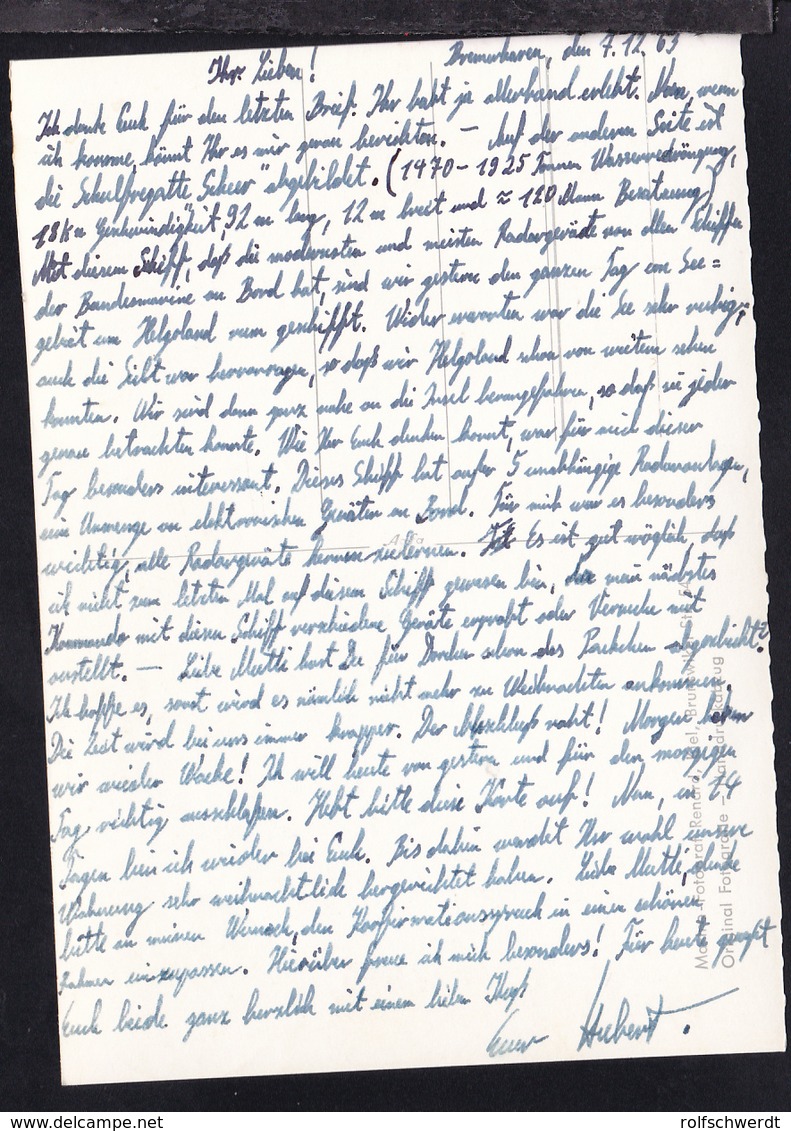 Bremerhaven, den 7.12.63
Ihr Lieben!
Ich danke Euch für den letzten Brief. Ihr habt ja allerhand erlebt. Nun, wenn
ich komme, könnt Ihr es mir genau berichten. — Auf der anderen Seite ist
die Schulfregatte „Scheer" abgebildet. (1470-1925 Tonnen Wasserverdrängung,
18 kn Geschwindigkeit, 92 m lang, 12 m breit und ≈ 120 Mann Besatzung)
Mit diesem Schiff, daß die modernsten und meisten Radargeräte von allen Schiffen
der Bundesmarine an Bord hat, sind wir gestern den ganzen Tag im See=
gebiet um Helgoland rum geschifft. Wider erwarten war die See sehr ruhig,
auch die Sicht war hervorragen, so daß wir Helgoland schon von weitem sehen
konnten. Wir sind dann ganz nahe an die Insel herangefahren, so daß sie jeder
genau betrachten konnte. Wie Ihr Euch denken konnt, war für mich dieser
Tag besonders interessant. Dieses Schiff hat außer 5 unabhängige Radaranlagen,
eine Unmenge an elektronischen Geräten an Bord. Für mich war es besonders
wichtig, alle Radargeräte kennen zulernen. Es ist gut möglich, daß
ich nicht zum letzten Mal auf diesem Schiff gewesen bin, da mein nächstes
Kommando mit diesen Schiff verschiedene Geräte erprobt oder Versuche mit
anstellt. — Liebe Mutti hast Du für Dorchen schon das Päckchen abgeschickt?
Ich hoffe es, sonst wird es nämlich nicht mehr zu Weihnachten ankommen.
Die Zeit wird bei uns immer knapper. Der Abschluß naht! Morgen haben
wir wieder Wache! Ich will heute von gestern und für den morgigen
Tag richtig ausschlafen. Hebt bitte diese Karte auf! Nun, in 14
Tagen bin ich wieder bei Euch. Bis dahin werdet Ihr wohl unsere
Wohnung sehr weihnachtlich hergerichtet haben. Liebe Mutti, denke
bitte an meinen Wunsch, den Konfirmationsspruch in einen schönen
Rahmen einzupassen. Hierüber freue ich mich besonders! Für heute grüßt
Euch beide ganz herzlich mit einem lieben Kuß
Euer Hubert.
Original Fotografie
rolfschwerdt